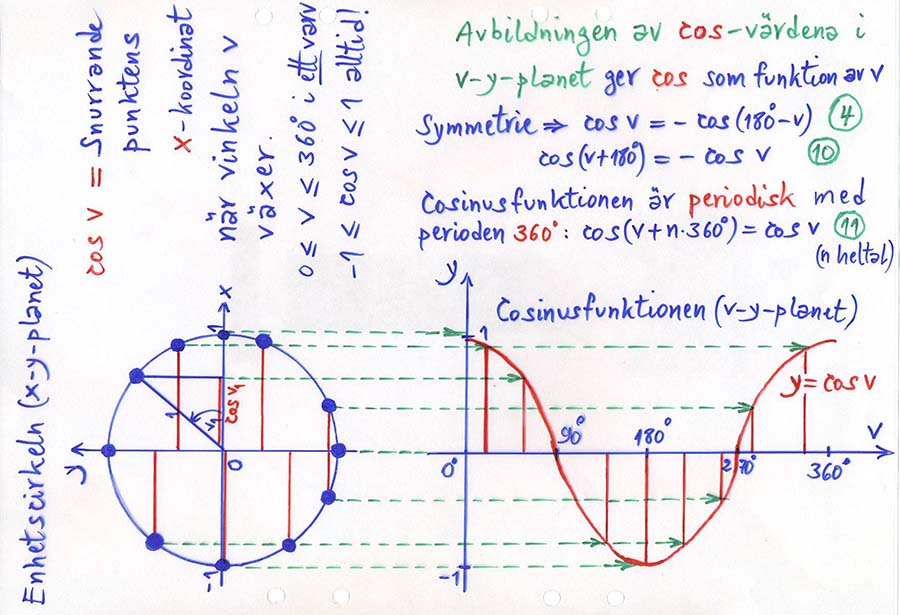 cos v = Snurrande
punktens
x-koordinat
när vinkeln v
växer.
0 ≤ v ≤ 360° i ett varv
-1 ≤ cos v ≤ 1 alltid!
Avbildningen av cos-värdena i
v-y-planet ger cos som funktion av v
Symmetrie ⇒ cos v = - cos(180°-v) 4
cos(v+180°) = - cos v 10
Cosinusfunktionen är periodisk med
perioden 360°: cos(v+n·360°) = cos v 11
(n heltal)
Enhetscirkeln (x-y-planet)
x
1
1
v₁
cos v₁
y
0
-1
y
Cosinusfunktionen (v-y-planet)
1
y = cos v
90°
180°
v
0°
270°
360°
-1